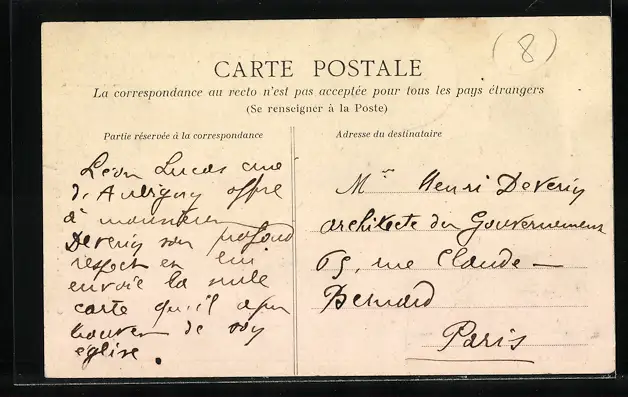 (8)
CARTE POSTALE
La correspondance au recto n'est pas acceptée pour tous les pays étrangers
(Se renseigner à la Poste)
Partie réservée à la correspondance
Adresse du destinataire
Léon Lucas curé
d'Aubigny offre
à monsieur
Deverin son profond
respect en lui
envoie la seule
carte qu'il a pu
trouver de son
église.
Mr Henri Deverin
architecte du Gouvernement
rue Claude-
Bernard
Paris